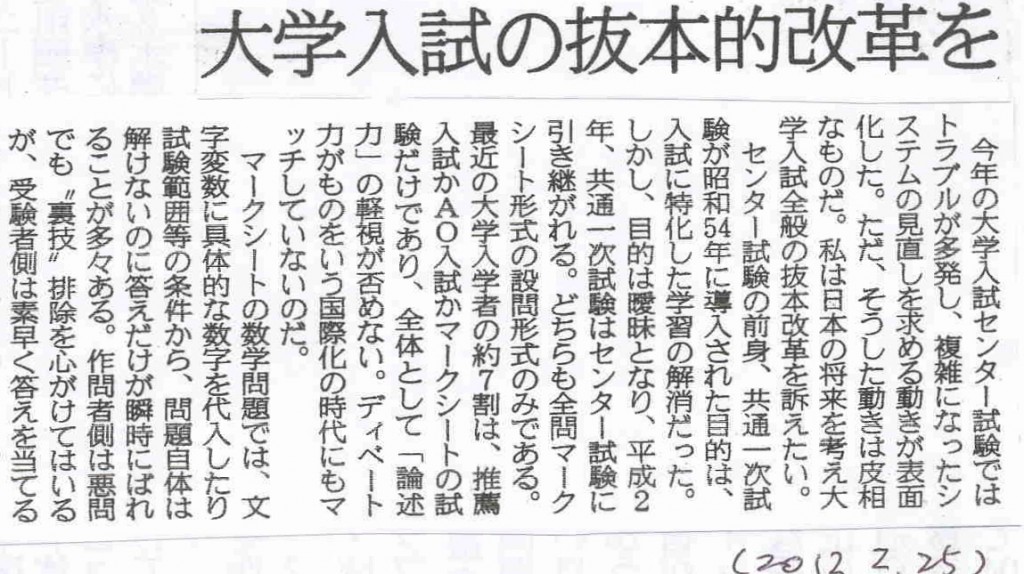 大学入試の抜本的改革を
今年の大学入試センター試験では
トラブルが多発し、複雑になったシ
ステムの見直しを求める動きが表面
化した。ただ、そうした動きは皮相
なものだ。私は日本の将来を考え大
学入試全般の抜本改革を訴えたい。
センター試験の前身、共通一次試
験が昭和54年に導入された目的は、
入試に特化した学習の解消だった。
しかし、目的は曖昧となり、平成2
年、共通一次試験はセンター試験に
引き継がれる。どちらも全問マーク
シート形式の設問形式のみである。
最近の大学入学者の約7割は、推薦
入試かAO入試かマークシートの試
験だけであり、全体として「論述
力」の軽視が否めない。ディベート
力がものをいう国際化の時代にもマ
ッチしていないのだ。
マークシートの数学問題では、文
字変数に具体的な数字を代入したり
試験範囲等の条件から、問題自体は
解けないのに答えだけが瞬時にばれ
ることが多々ある。作問者側は悪問
でも〝裏技〟排除を心がけてはいる
が、受験者側は素早く答えを当てる
(2012 2.25)